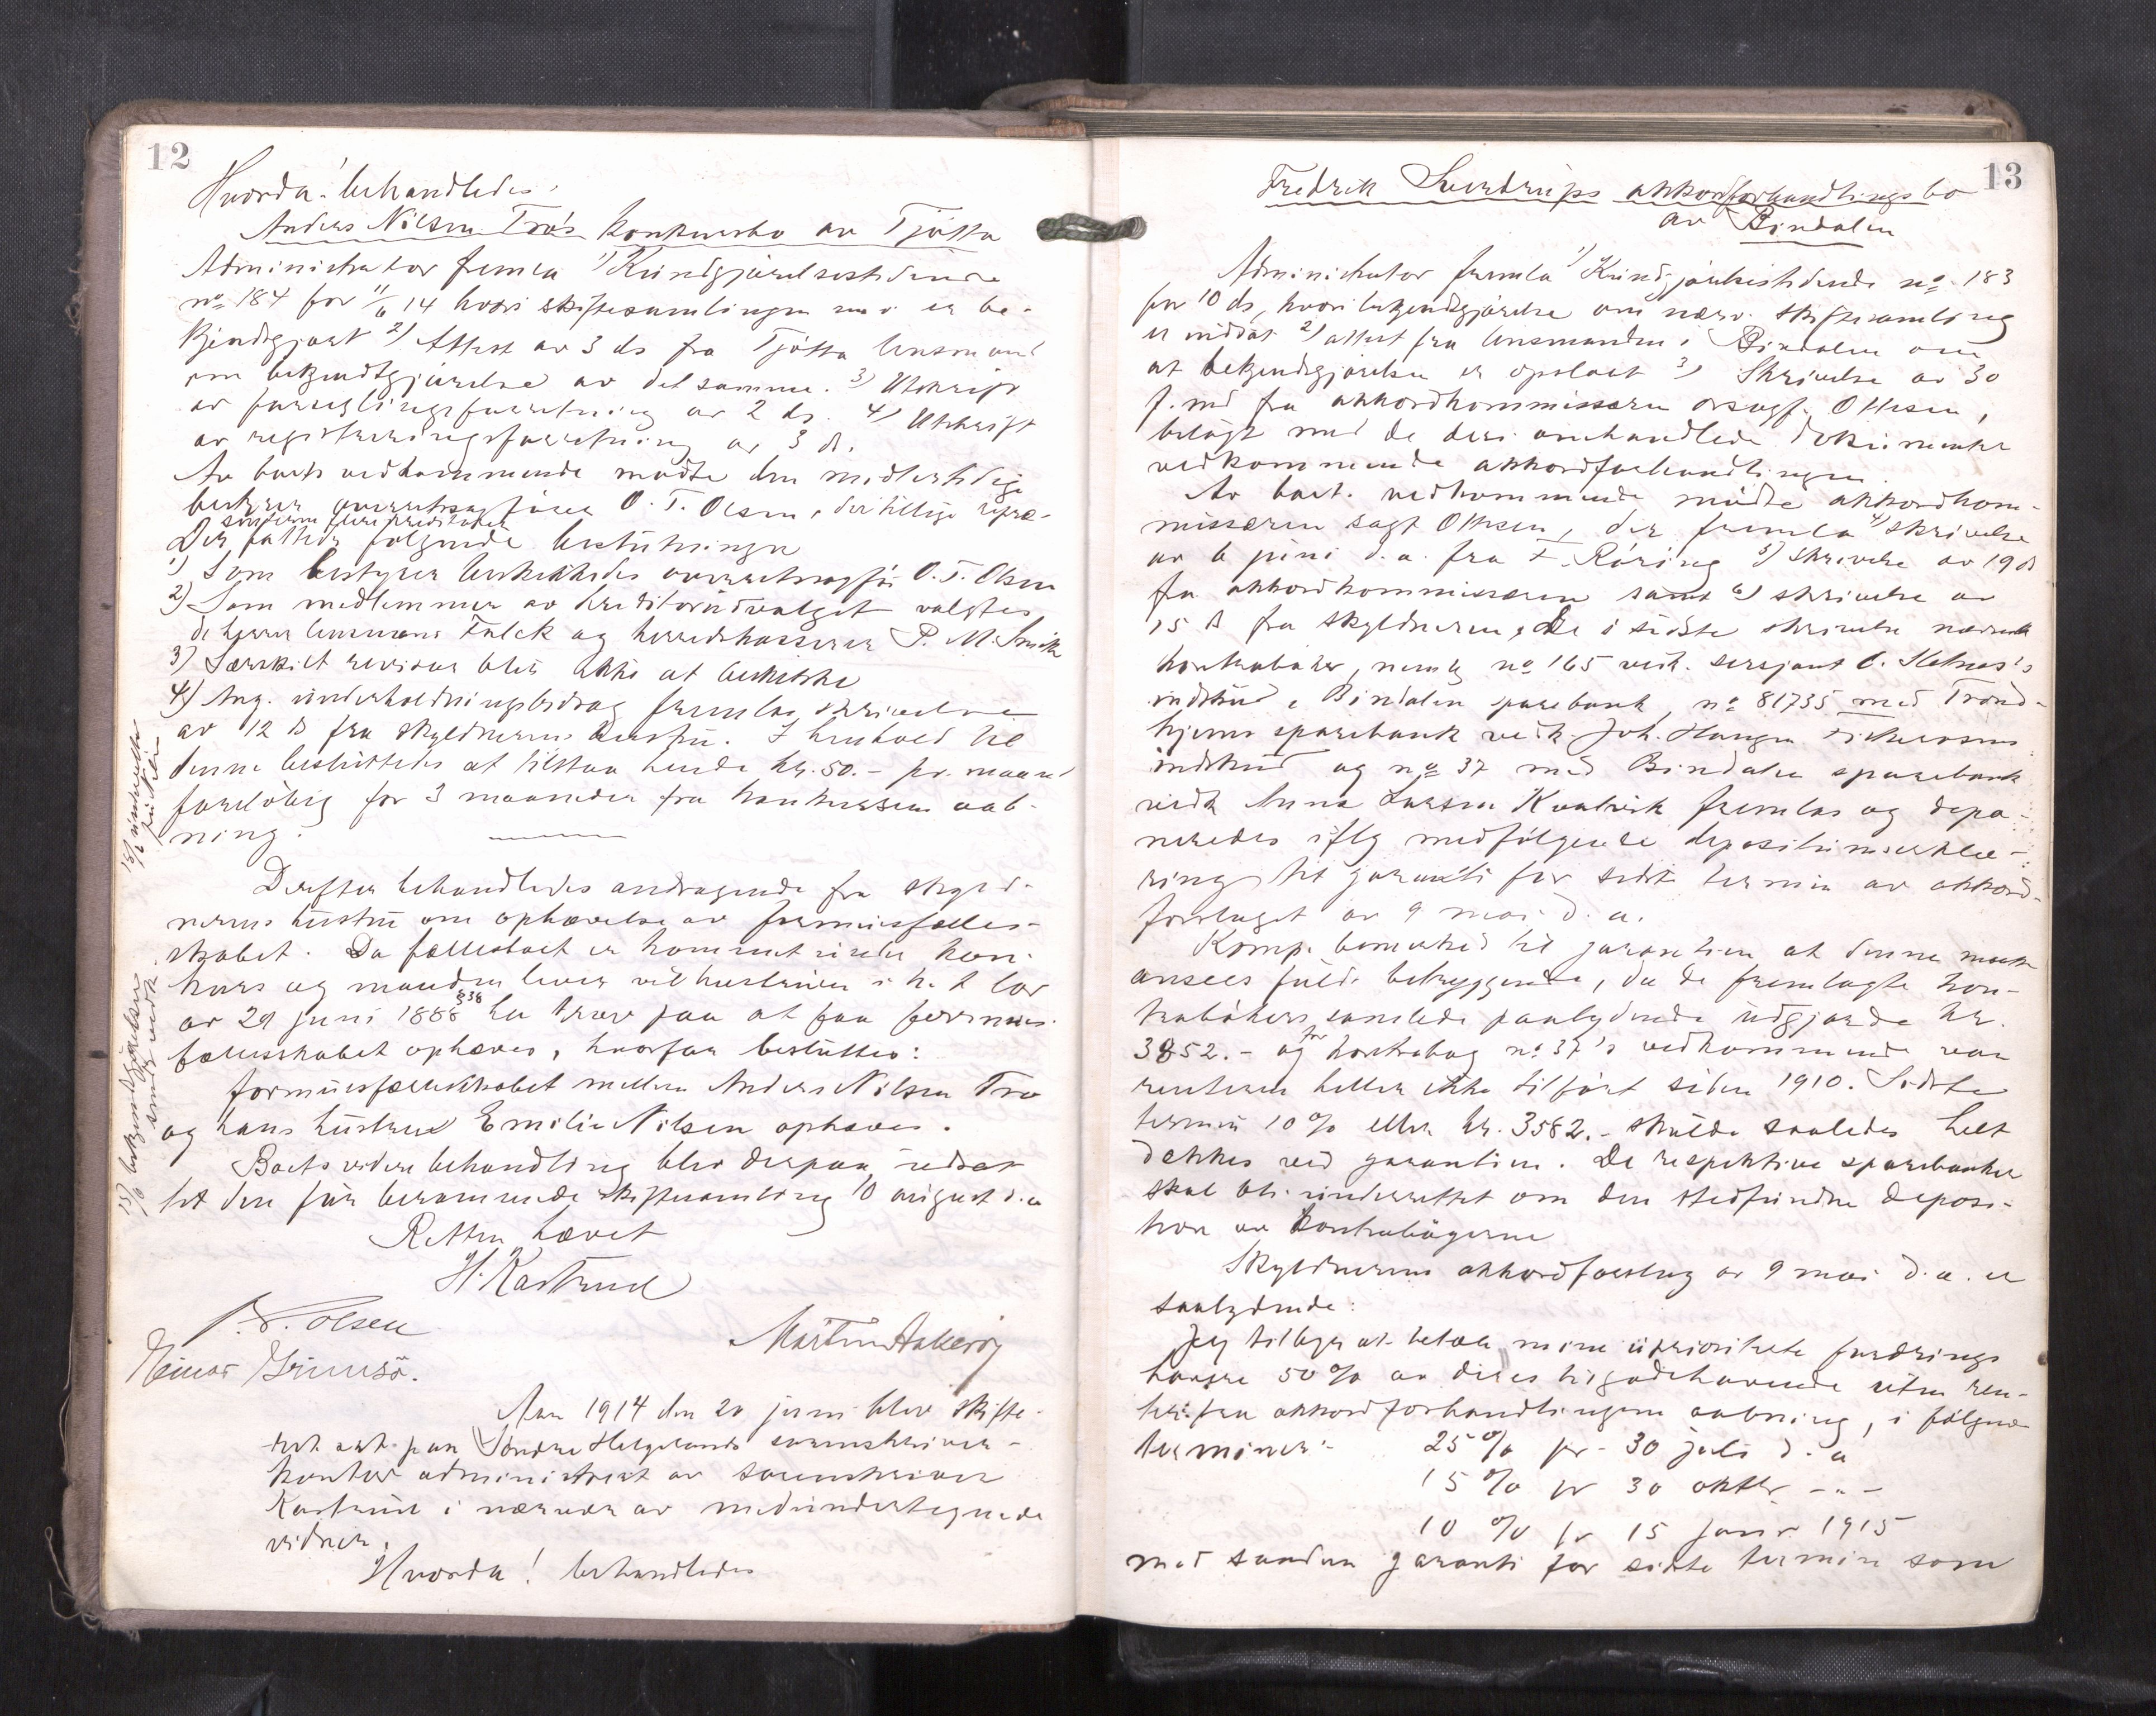 12
Hvorda! behandledes:
Anders Nilsen Trø's konkursbo av Tjøtta
Administrator fremla 1) Kundgjørelsestidende
no 184 for 11/6 14 hvori skiftesamlingen er be-
kjendtgjort 2) Attest av 3 ds fra Tjøtta lensmand
om bekjendtgjørelse av det samme. 3) Utskrift
av forseglingsforretning av 2 ds. 4) Utskrift
av registreringsforretning av 3 ds.
Av boets vedkommende møtte den midlertidige
bestyrer overretssagfører O. T. Olsen, der tillige repre-
senterer flere kreditorer
Der fattedes følgende beslutninger
1) Som bestyrer beskikkedes overretssagfø. O. T. Olsen
2) Som medlemmer av kreditorudvalget valgtes
de herrer lensmand Falck og herredskasserer P. M.
3) Særskilt revisor blir ikke at beskikke
4) Ang. underholdningsbidrag fremlas skrivelse
av 12 ds fra skyldnerens hustru. I henhold til
denne besluttedes at tilstaa hende kr. 50.- pr. maaned
foreløbig for 3 maaneder fra konkursens aab-
ning.
Derefter behandledes andragende fra skyld-
nerens hustru om ophævelse av formuesfælles-
skabet. Da fællesboet er kommet under kon-
kurs og manden lever vil hustruen i h. t. lov
av 29 juni 1888 § 38 ha krav paa at faa formues-
fællesskabet ophævet, hvorfor besluttes:
Formuesfællesskabet mellem Anders Nilsen Trø
og hans hustru Emilie Nilsen ophæves.
Boets videre behandling blev derpaa udsat
til den før berammede skiftesamling 10 august d. a
Retten hævet
H. Kastrud
O. T. Olsen
Martin Aakerøy
Einar
Aar 1914 den 20 juni blev skifte-
ret sat paa Søndre Helgelands sorenskriver-
kontor administrert av sorenskriver
Kastrud i nærvær av medundertegnede
vidner.
Hvorda! behandledes
13
Fredrik Sverdrups akkordforhandlingsbo
av Bindalen
Administrator fremla 1) Kundgjørelsestidende no 183
for 10 ds, hvori bekjendtgjørelse om nærv. skiftesamling
er indtat 2) attest fra lensmanden i Bindalen om
at bekjendtgjørelsen er opslaat 3) Skrivelse av 30
f. md fra akkordkommissæren orsagf. Ottesen,
belagt med de deri omhandlede dokumenter
vedkommende akkordforhandlingen.
Av boet. vedkommende møtte akkordkom-
missæren sagf Ottesen, der fremla 4) skrivelse
av 6 juni d. a. fra F. Røring 5) Skrivelse av 19 ds
fra akkordkommissæren samt 6) skrivelse av
15 ds fra skyldneren. De i sidste skrivelse nævnte
kontrabøker, nemlig no 165 vedk. sersjant
indskud i Bindalen sparebank, no 81735 med Trond-
hjems sparebank vedk. Joh. Haugen
indskud og no 37 med Bindalen sparebank
vedk Anna Larsen Kvalvik fremlas og depo-
neredes iflg medfølgende depositumserklæ-
ring til garanti for sidste termin av akkord-
forslaget av 9 mai d. a.
Komp. bemerket til garantien at denne maatte
ansees fuldt betryggende, da de fremlagte kon-
trabøkers samlede paalydende udgjorde kr.
3852.- og for kontrabog no 37's vedkommende var
renterne heller ikke tilført siden 1910. Sidste
termin 10% eller kr. 3582.- skulde saaledes helt
dækkes ved garantien. De respektive sparebanker
skal bli underrettet om den stedfundne deposi-
tion av kontrabøgerne
Skyldnerens akkordforslag av 9 mai d. a. er
saalydende:
Jeg tilbyr at betale mine uprioriterte fordrings-
havere 50% av deres tilgodehavende uten ren-
ter fra akkordforhandlingens aabning, i følgende
terminer: 25% pr. 30 juli d. a
15% pr 30 oktbr - " -
10% pr 15 janr. 1915
mot saadan garanti for sidste termin som